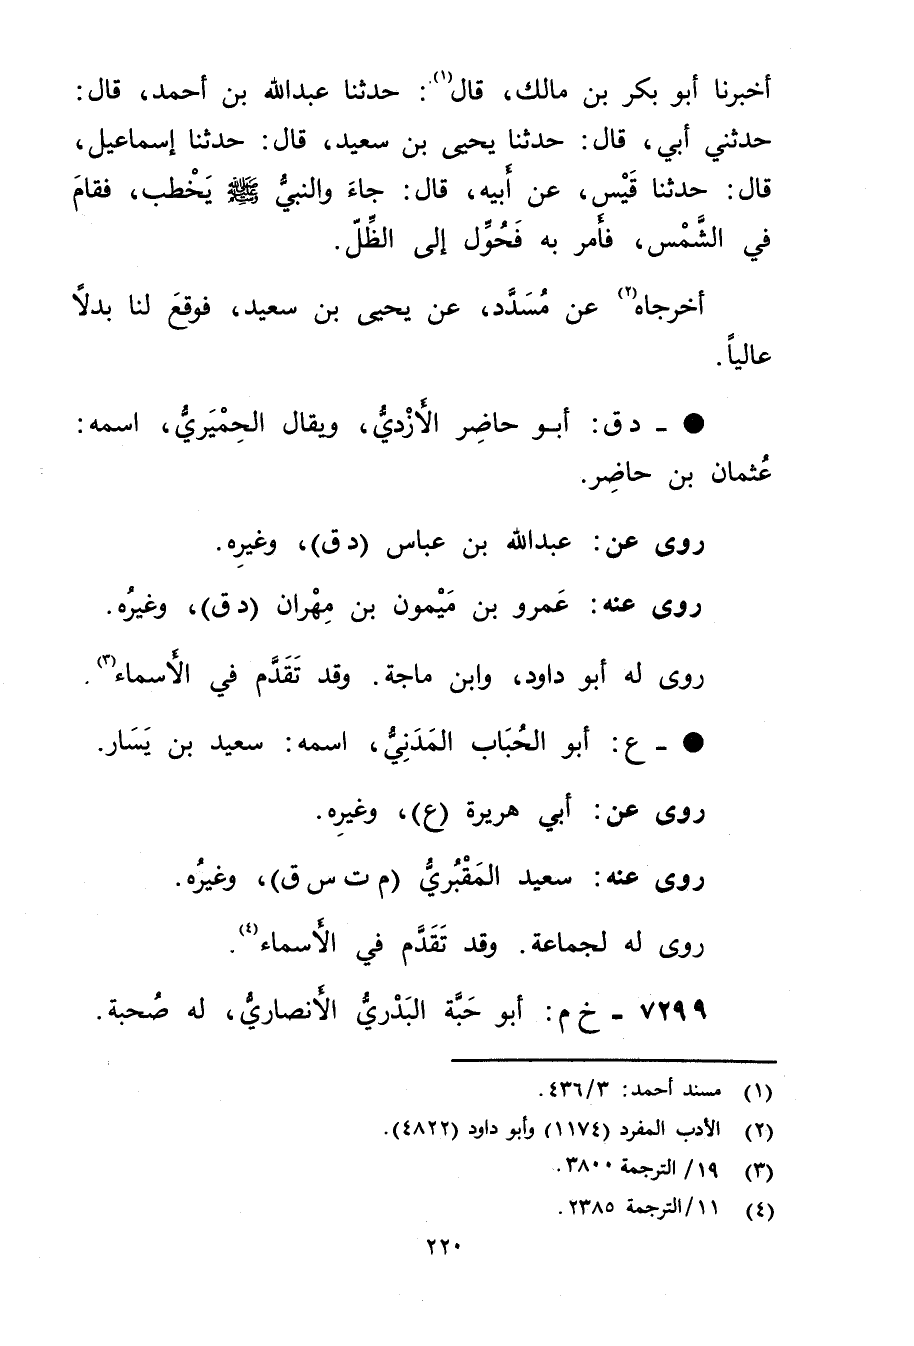 أخبرنا أبو بكر بن مالك، قال(١): حدثنا عبدالله بن أحمد، قال:
حدثني أبي، قال: حدثنا يحيى بن سعيد، قال: حدثنا إسماعيل،
قال: حدثنا قَيْس، عن أَبيه، قال: جاءَ والنبيُّ ﷺ يَخْطب، فقامَ
في الشَّمْس، فأَمر به فَحُوِّل إلى الظِّلّ.
أخرجاه(٢) عن مُسَدَّد، عن يحيى بن سعيد، فوقعَ لنا بدلاً
عالياً.
● ـ د ق: أبو حاضِر الأَزْديُّ، ويقال الحِمْيَريُّ، اسمه:
عُثمان بن حاضِر.
روى عن: عبدالله بن عباس (د ق)، وغيرِه.
روى عنه: عَمرو بن مَيْمون بن مِهْران (د ق)، وغيرُه.
روى له أبو داود، وابن ماجة. وقد تَقَدَّم في الأَسماء(٣).
● ـ ع: أبو الحُبَاب المَدَنِيُّ، اسمه: سعيد بن يَسَار.
روى عن: أبي هريرة (ع)، وغيرِه.
روى عنه: سعيد المَقْبُريُّ (م ت س ق)، وغيرُه.
روى له لجماعة. وقد تَقَدَّم في الأَسماء(٤).
٧٢٩٩ ـ خ م: أبو حَبَّة البَدْريُّ الأَنصاريُّ، له صُحبة.
(١) مسند أحمد: ٤٣٦/٣.
(٢) الأدب المفرد (١١٧٤) وأبو داود (٤٨٢٢).
(٣) ١٩/ الترجمة ٣٨٠٠.
(٤) ١١/الترجمة ٢٣٨٥.
٢٢٠